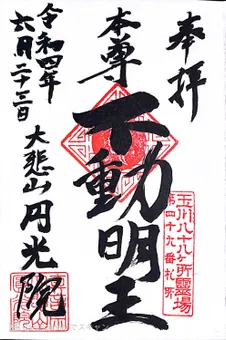 奉拝
玉川八十八ヶ所霊場
第四十九番札所
本尊
不動明王
大悲山円光院
令和四年
六月二十三日